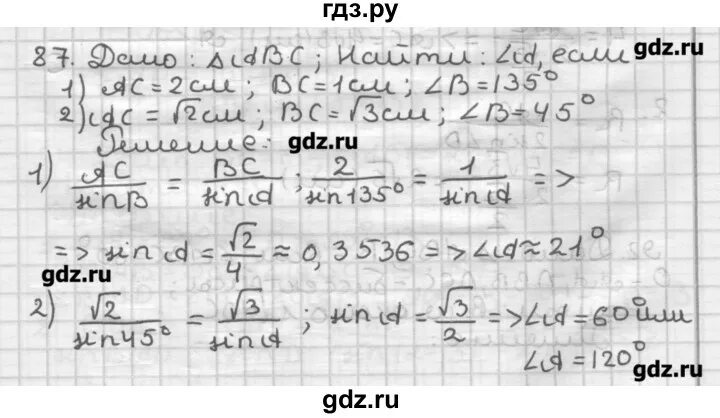 гдз.ру
87. Дано: △ABC; Найти: ∠A, если
1) AC = 2см; BC = 1см; ∠B = 135°
2) AC = √2см; BC = √3см; ∠B = 45°
Решение: gdz.ru
gdz.ru
1) AC/sinB = BC/sinA; 2/sin135° = 1/sinA =>
=> sinA = √2/4 ≈ 0,3536 => ∠A ≈ 21°
gdz.ru
gdz.ru
2) √2/sin45° = √3/sinA; sinA = √3/2 => ∠A = 60° или
∠A = 120°
gdz.ru
gdz.ru